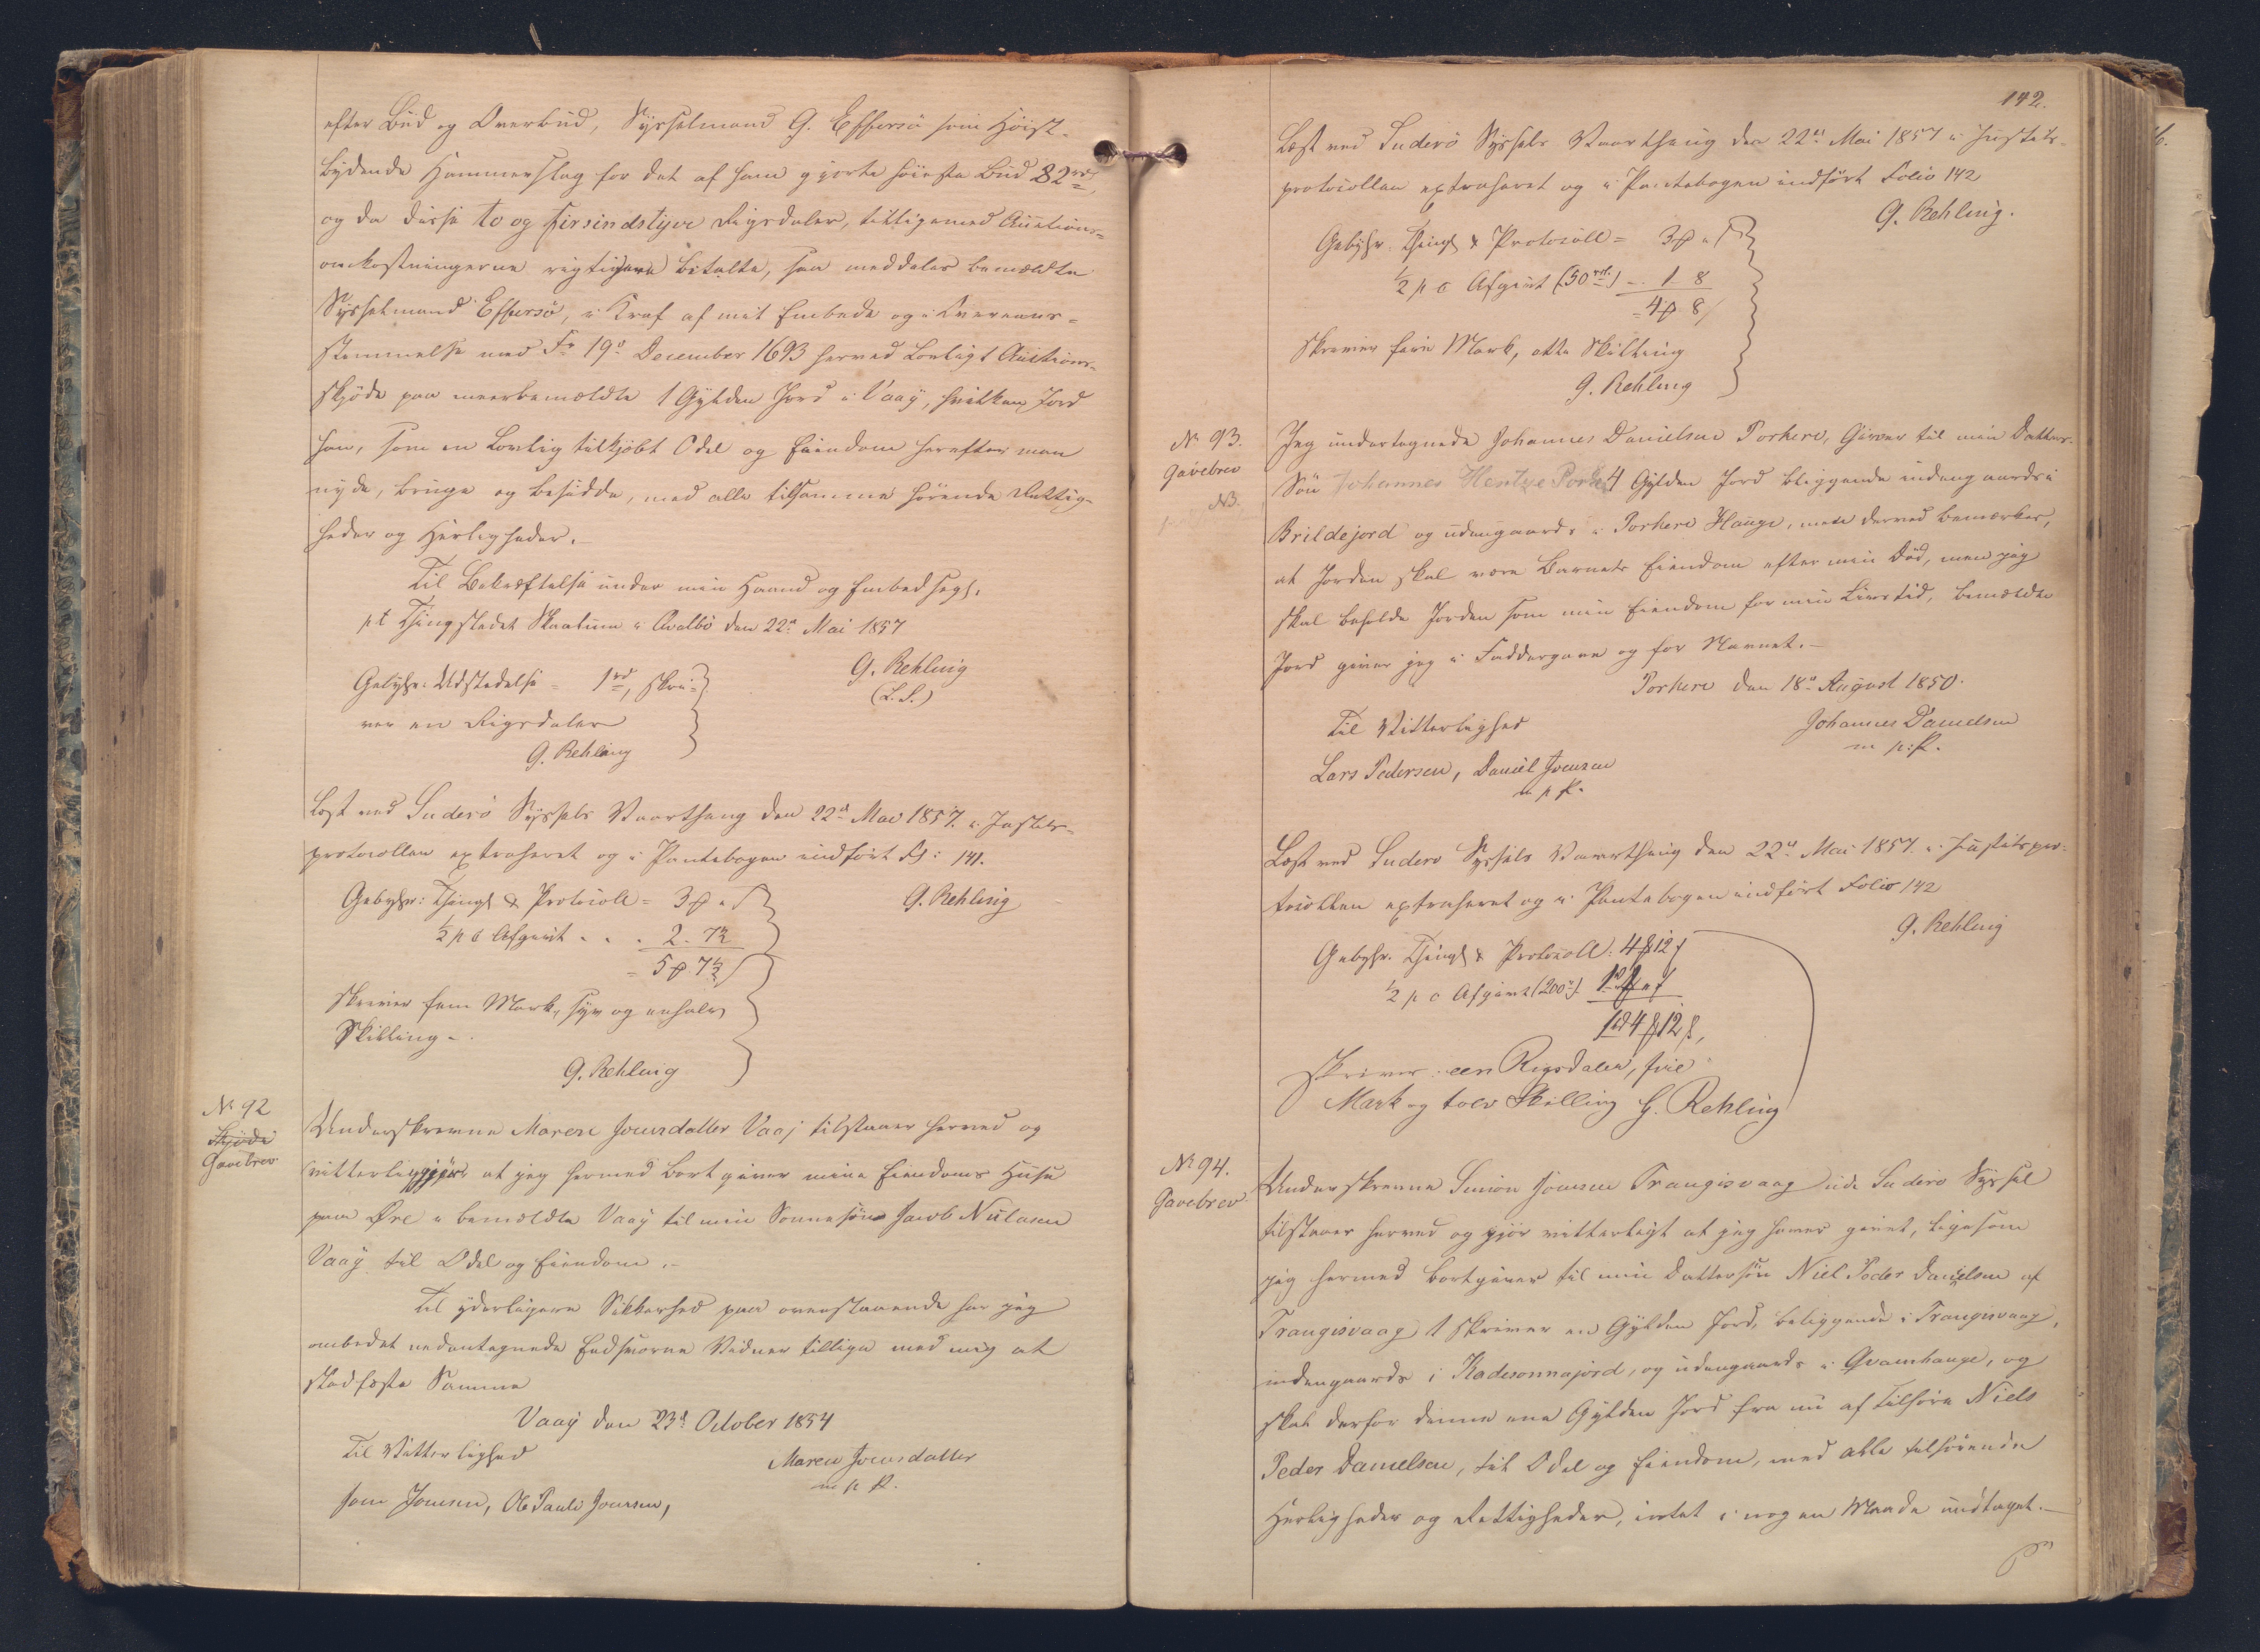 efter Bud og Overbud, Sysselmand G. Effersö som Höist-
bydende Hammerslag for det af ham gjorte höieste Bud 82 rd,
og da disse to og firsindstyve Rigsdaler, tilligemed Auctions-
omkostningerne rigtigen betalte, saa meddeles bemældte
Sysselmand Effersö, i Kraf af mit Embede og i Overeens-
stemmelse med Fr 19de December 1693 herved Lovligt Auctions-
skjöde paa meerbemældte 1 Gylden Jord i Vaag, hvilken Jord
han, som en Lovlig tilkjöbt Odel og Eiendom herefter maa
nyde, bruge og besidde, med alle tilsamme hörende Rettig-
heder og Herligheder.
Til Bekræftelse under min Haand og Embedsegl.
pt Thingstedet Skaatun i Qvalbö den 22de Mai 1857
G. Rehling
(L.S.)
Gebyhr: Udstedelse = 1 rd, skri-
ver en Rigsdaler
G. Rehling
Læst ved Suderö Syssels Vaarthing den 22de Mai 1857. i Justits-
protocollen extraheret og i Pantebogen indfört Fol: 141.
G. Rehling
Gebyhr: Thingl & Protocoll = 3 " ſ
½ p c Afgivt . . . 2. 7½
= 5 7½ ſ
skriver fem Mark, syv og enhalv
Skilling.
G. Rehling
No 92
Skjöde
Gavebrev
Underskrevne Maren Joensdatter Vaaj tilstaaer herved og
vitterliggjör at jeg hermed bortgiver mine Eiendoms Huse
paa Öre i bemældte Vaag til min Sonnesön Jacob Nielasen
Vaag til Odel og Eiendom.
Til yderligere Sikkerhed paa ovenstaaende har jeg
ombedet nedentegnede Eedsvorne Vidner tillige med mig at
stadfæste Samme
Vaag den 23d October 1854
Til Vitterlighed
Maren Joensdatter
m p P.
Joen Joensen, Ole Pauli Joensen,
142.
Læst ved Suderö Syssels Vaarthing den 22de Mai 1857 i Justits-
protocollen extraheret og i Pantebogen indfört Folio 142
G. Rehling.
Gebyhr. Thingl & Protocoll = 3 " ſ
½ p c Afgivt (50 rd) - 1 8
= 4 8 ſ
skriver fire Mark, otte Skilling
G. Rehling
No 93.
Gavebrev
NB.
Jeg undertegnede Johannes Danielsen Porkere, Giver til min Datter-
Sön Johannes Hentze Pork 4 Gylden Jord bliggende indengaards i
Brildejord og udengaards i Porkere Hauge, men derved bemærkes,
at Jorden skal være Barnets Eiendom efter min Död, men jeg
skal beholde Jorden som min Eiendom for min Livstid, bemældte
Jord giver jeg i Faddergave og for Navnet.
Porkere den 18de August 1850.
Til Vitterlighed
Johannes Danielsen
m p: P.
Lars Pedersen, Daniel Joensen
m p P.
Læst ved Suderö Syssels Vaarthing den 22de Mai 1857. i Justitspro-
tocollen extraheret og i Pantebogen indfört Folio 142
G. Rehling
Gebyhr. Thingl & Protocoll: 4 12 ſ
½ p c Afgivt (200 rd) 1 rd
1 rd 4 12 ſ,
skriver: een Rigsdaler, fire
Mark og tolv Skilling G. Rehling
No 94.
Gavebrev
Underskrevne Simon Joensen Trangisvaag udi Suderö Syssel
tilstaaer herved og gjör vitterligt at jeg haver givet, ligesom
jeg hermed bortgiver til min Dattersön Niels Peder Danielsen af
Trangisvaag 1 skriver en Gylden Jord, beliggende i Trangisvaag,
indengaards i Kadesonnajord, og udengaards i Qvamhauge, og
skal derfor denne ene Gylden Jord fra nu af tilhöre Niels
Peder Danielsen, til Odel og Eiendom, med alle tilhörende
Herligheder og Rettigheder, intet i nogen Maade undtaget.